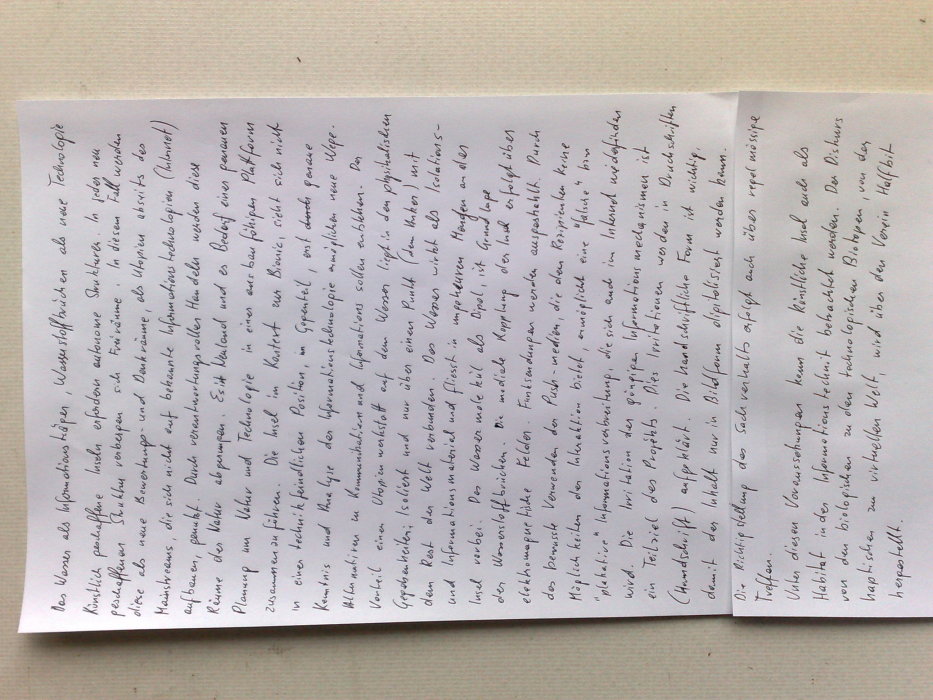 Das Wasser als Informationsträger, Wasserstoffbrücken als neue Technologie
Künstlich geschaffene Inseln erfordern autonome Strukturen. In jeder neu
geschaffenen Struktur verbergen sich Freiräume. In diesem Fall werden
diese als neue Bewertungs- und Denkräume, als Utopien abseits des
Mainstreams, die sich nicht auf bekannte Informationstechnologien (Internet)
aufbauen, genutzt. Durch verantwortungsvolles Handeln werden diese
Räume der Natur abgerungen. Es ist Neuland und es Bedarf einer genauen
Planung um Natur und Technologie in einer ausbaufähigen Plattform
zusammen zu führen. Die Insel im Kontext zur Bionic, sieht sich nicht
in einer technikfeindlichen Position, im Gegenteil, erst durch genaue
Kenntnis und Analyse der Informationstechnologie ermöglichen neue Wege.
Alternativen zu Kommunikation und Informations sollen entstehen. Der
Vorteil einer Utopienwerkstatt auf dem Wasser liegt in den physikalischen
Gegebenheiten: Isoliert und nur über einen Punkt (den Anker) mit
dem Rest der Welt verbunden. Das Wasser wirkt als Isolations-
und Informationsmaterial und fliesst in ungeheuren Mengen an der
Insel vorbei. Das Wassermolekül als Dipol, ist Grundlage
der Wasserstoffbrücken. Die mediale Kopplung der Insel erfolgt über
elektromagnetische Felder. Funksendungen werden ausgestrahlt. Durch
das bewusste Verwenden der Push-medien, die dem Rezipienten keine
Möglichkeiten der Interaktion bietet ermöglicht eine "falsche" bzw
"plakative" Informationsverbreitung, die sich auch im Internet wiederfinden
wird. Die Irritation der gängigen Informationsmechanismen ist
ein Teilziel des Projekts. Diese Irritationen werden in Druckschriften
(Handschrift) aufgeklärt. Die handschriftliche Form ist wichtig.
damit der Inhalt nur in Bildform digitalisiert werden kann.
Die Richtigstellung des Sachverhalts erfolgt auch über regelmässige
Treffen.
Unter diesen Voraussetzungen kann die Künstliche Insel auch als
Habitat in der Informationstechnik betrachtet werden. Der Diskurs
von den biologischen zu den technologischen Biotopen, von der
haptischen zu virtuellen Welt, wird über den Verein Halfbit
hergestellt.